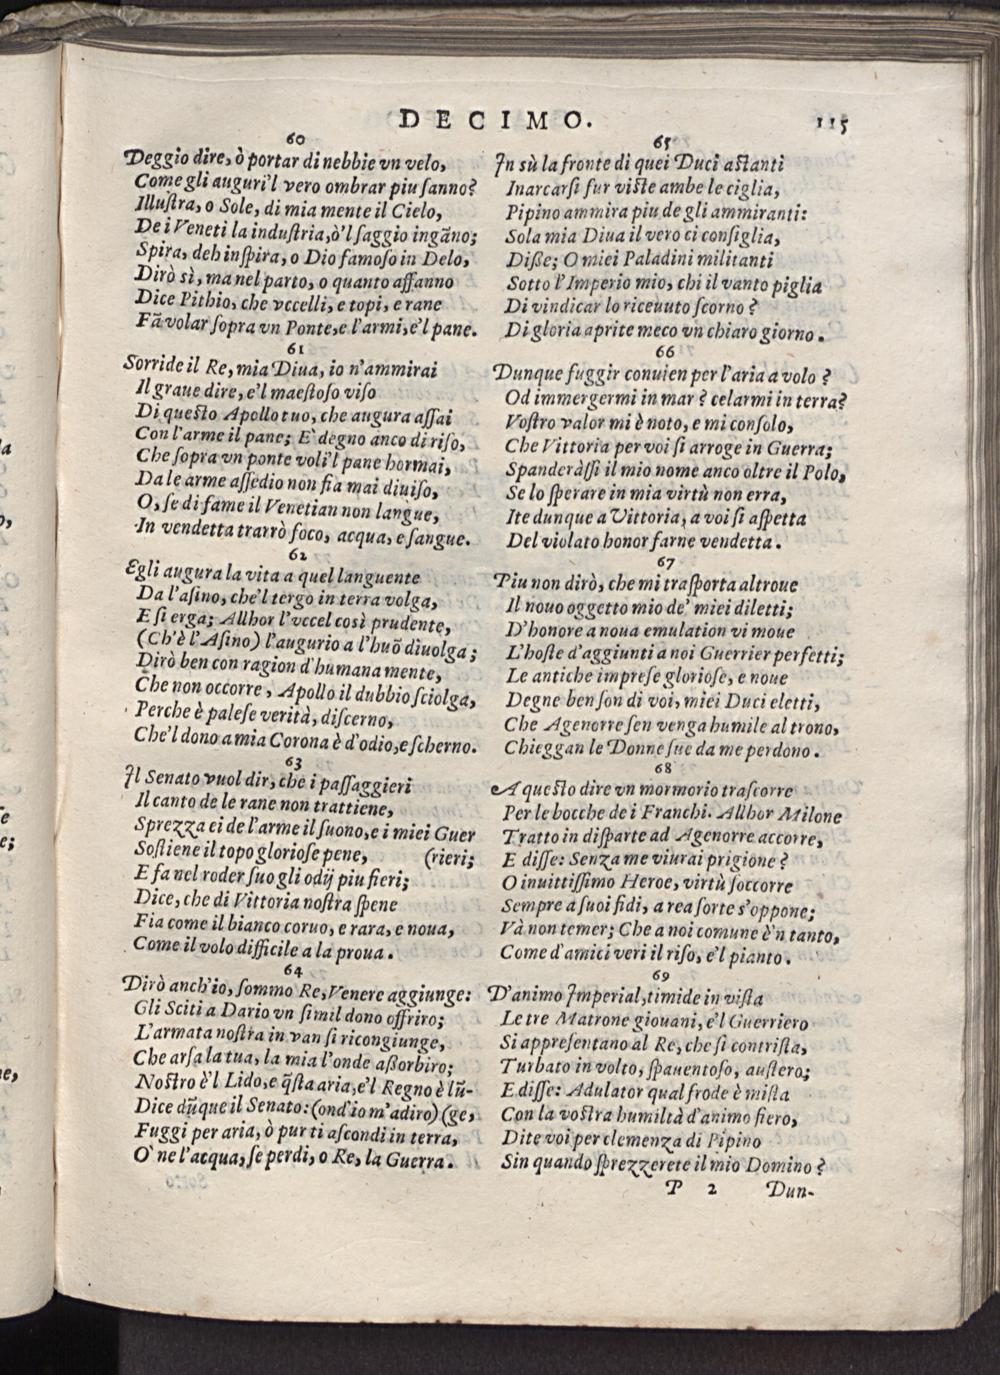 DECIMO.
115
60
Deggio dire, ò portar di nebbie vn velo,
Come gli auguri'l vero ombrar piu ſanno?
Illuſtra, o Sole, di mia mente il Cielo,
De i Veneti la induſtria, ò'l ſaggio ingāno;
Spira, deh inſpira, o Dio famoſo in Delo,
Dirò sì, ma nel parto, o quanto affanno
Dice Pithio, che vccelli, e topi, e rane
Fā volar ſopra vn Ponte, e l'armi, e'l pane.
61
Sorride il Re, mia Diua, io n'ammirai
Il graue dire, e'l maeſtoſo viſo
Di queſto Apollo tuo, che augura aſſai
Con l'arme il pane; E' degno anco di riſo,
Che ſopra vn ponte voli'l pane hormai,
Da le arme aſſedio non fia mai diuiſo,
O, ſe di fame il Venetian non langue,
In vendetta trarrò foco, acqua, e ſangue.
62
Egli augura la vita a quel languente
Da l'aſino, che'l tergo in terra volga,
E ſi erga; Allhor l'vccel così prudente,
(Ch'è l'Aſino) l'augurio a l'huō diuolga;
Dirò ben con ragion d'humana mente,
Che non occorre, Apollo il dubbio ſciolga,
Perche è paleſe verità, diſcerno,
Che'l dono a mia Corona è d'odio, e ſcherno.
63
Il Senato vuol dir, che i paſſaggieri
Il canto de le rane non trattiene,
Sprezza ei de l'arme il ſuono, e i miei Guer
Soſtiene il topo glorioſe pene, (rieri;
E fa nel roder ſuo gli odij piu fieri;
Dice, che di Vittoria noſtra ſpene
Fia come il bianco coruo, e rara, e noua,
Come il volo difficile a la proua.
64
Dirò anch'io, ſommo Re, Venere aggiunge:
Gli Sciti a Dario vn ſimil dono offriro;
L'armata noſtra in van ſi ricongiunge,
Che arſa la tua, la mia l'onde aſſorbiro;
Noſtro è'l Lido, e q̄ſta aria, e'l Regno è lū-
Dice dūque il Senato: (ond'io m'adiro) (ge,
Fuggi per aria, ò pur ti aſcondi in terra,
O ne l'acqua, ſe perdi, o Re, la Guerra.
65
In sù la fronte di quei Duci aſtanti
Inarcarſi fur viſte ambe le ciglia,
Pipino ammira piu de gli ammiranti:
Sola mia Diua il vero ci conſiglia,
Diſſe; O miei Paladini militanti
Sotto l'Imperio mio, chi il vanto piglia
Di vindicar lo riceuuto ſcorno?
Di gloria aprite meco vn chiaro giorno.
66
Dunque fuggir conuien per l'aria a volo?
Od immergermi in mar? celarmi in terra?
Voſtro valor mi è noto, e mi conſolo,
Che Vittoria per voi ſi arroge in Guerra;
Spanderàſſi il mio nome anco oltre il Polo,
Se lo ſperare in mia virtù non erra,
Ite dunque a Vittoria, a voi ſi aſpetta
Del violato honor farne vendetta.
67
Piu non dirò, che mi traſporta altroue
Il nouo oggetto mio de' miei diletti;
D'honore a noua emulation vi moue
L'hoſte d'aggiunti a noi Guerrier perfetti;
Le antiche impreſe glorioſe, e noue
Degne ben ſon di voi, miei Duci eletti,
Che Agenorre ſen venga humile al trono,
Chieggan le Donne ſue da me perdono.
68
A queſto dire vn mormorio traſcorre
Per le bocche de i Franchi. Allhor Milone
Tratto in diſparte ad Agenorre accorre,
E diſſe: Senza me viurai prigione?
O inuittiſſimo Heroe, virtù ſoccorre
Sempre a ſuoi fidi, a rea ſorte s'oppone;
Và non temer; Che a noi comune è'n tanto,
Come d'amici veri il riſo, e'l pianto.
69
D'animo Imperial, timide in viſta
Le tre Matrone giouani, e'l Guerriero
Si appreſentano al Re, che ſi contriſta,
Turbato in volto, ſpauentoſo, auſtero;
E diſſe: Adulator qual frode è miſta
Con la voſtra humiltà d'animo fiero,
Dite voi per clemenza di Pipino
Sin quando ſprezzerete il mio Domino?
P 2 Dun-